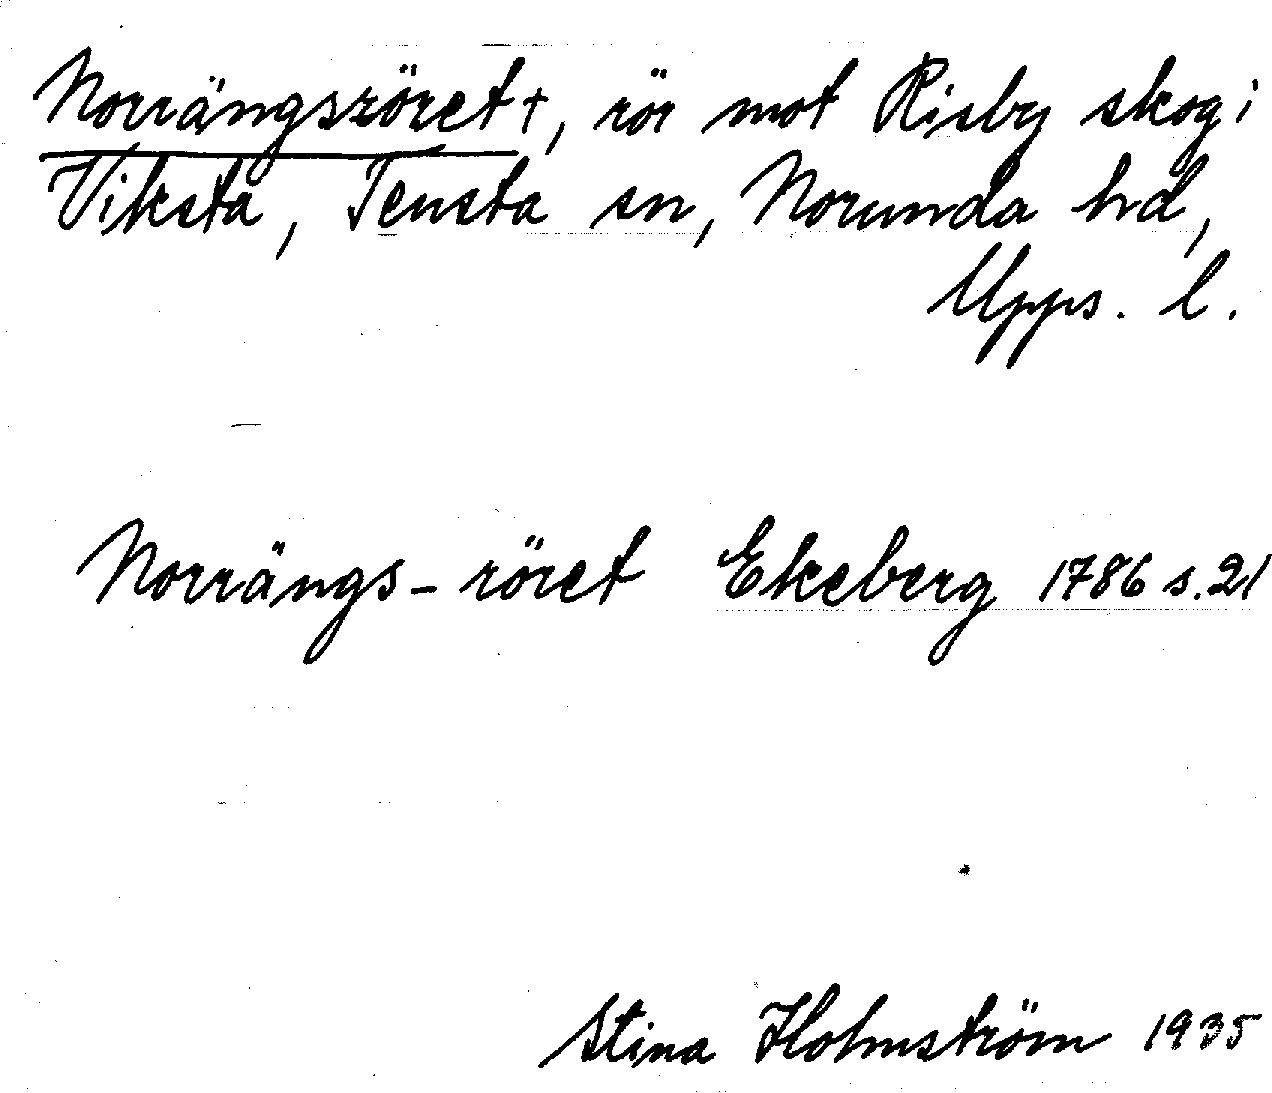 Norrängsröret †, rör mot Risby skog i
Viksta, Tensta sn, Norunda hd,
Upps. l.
Norrängs-röret Ekeberg 1786 s. 21
Stina Holmström 1935